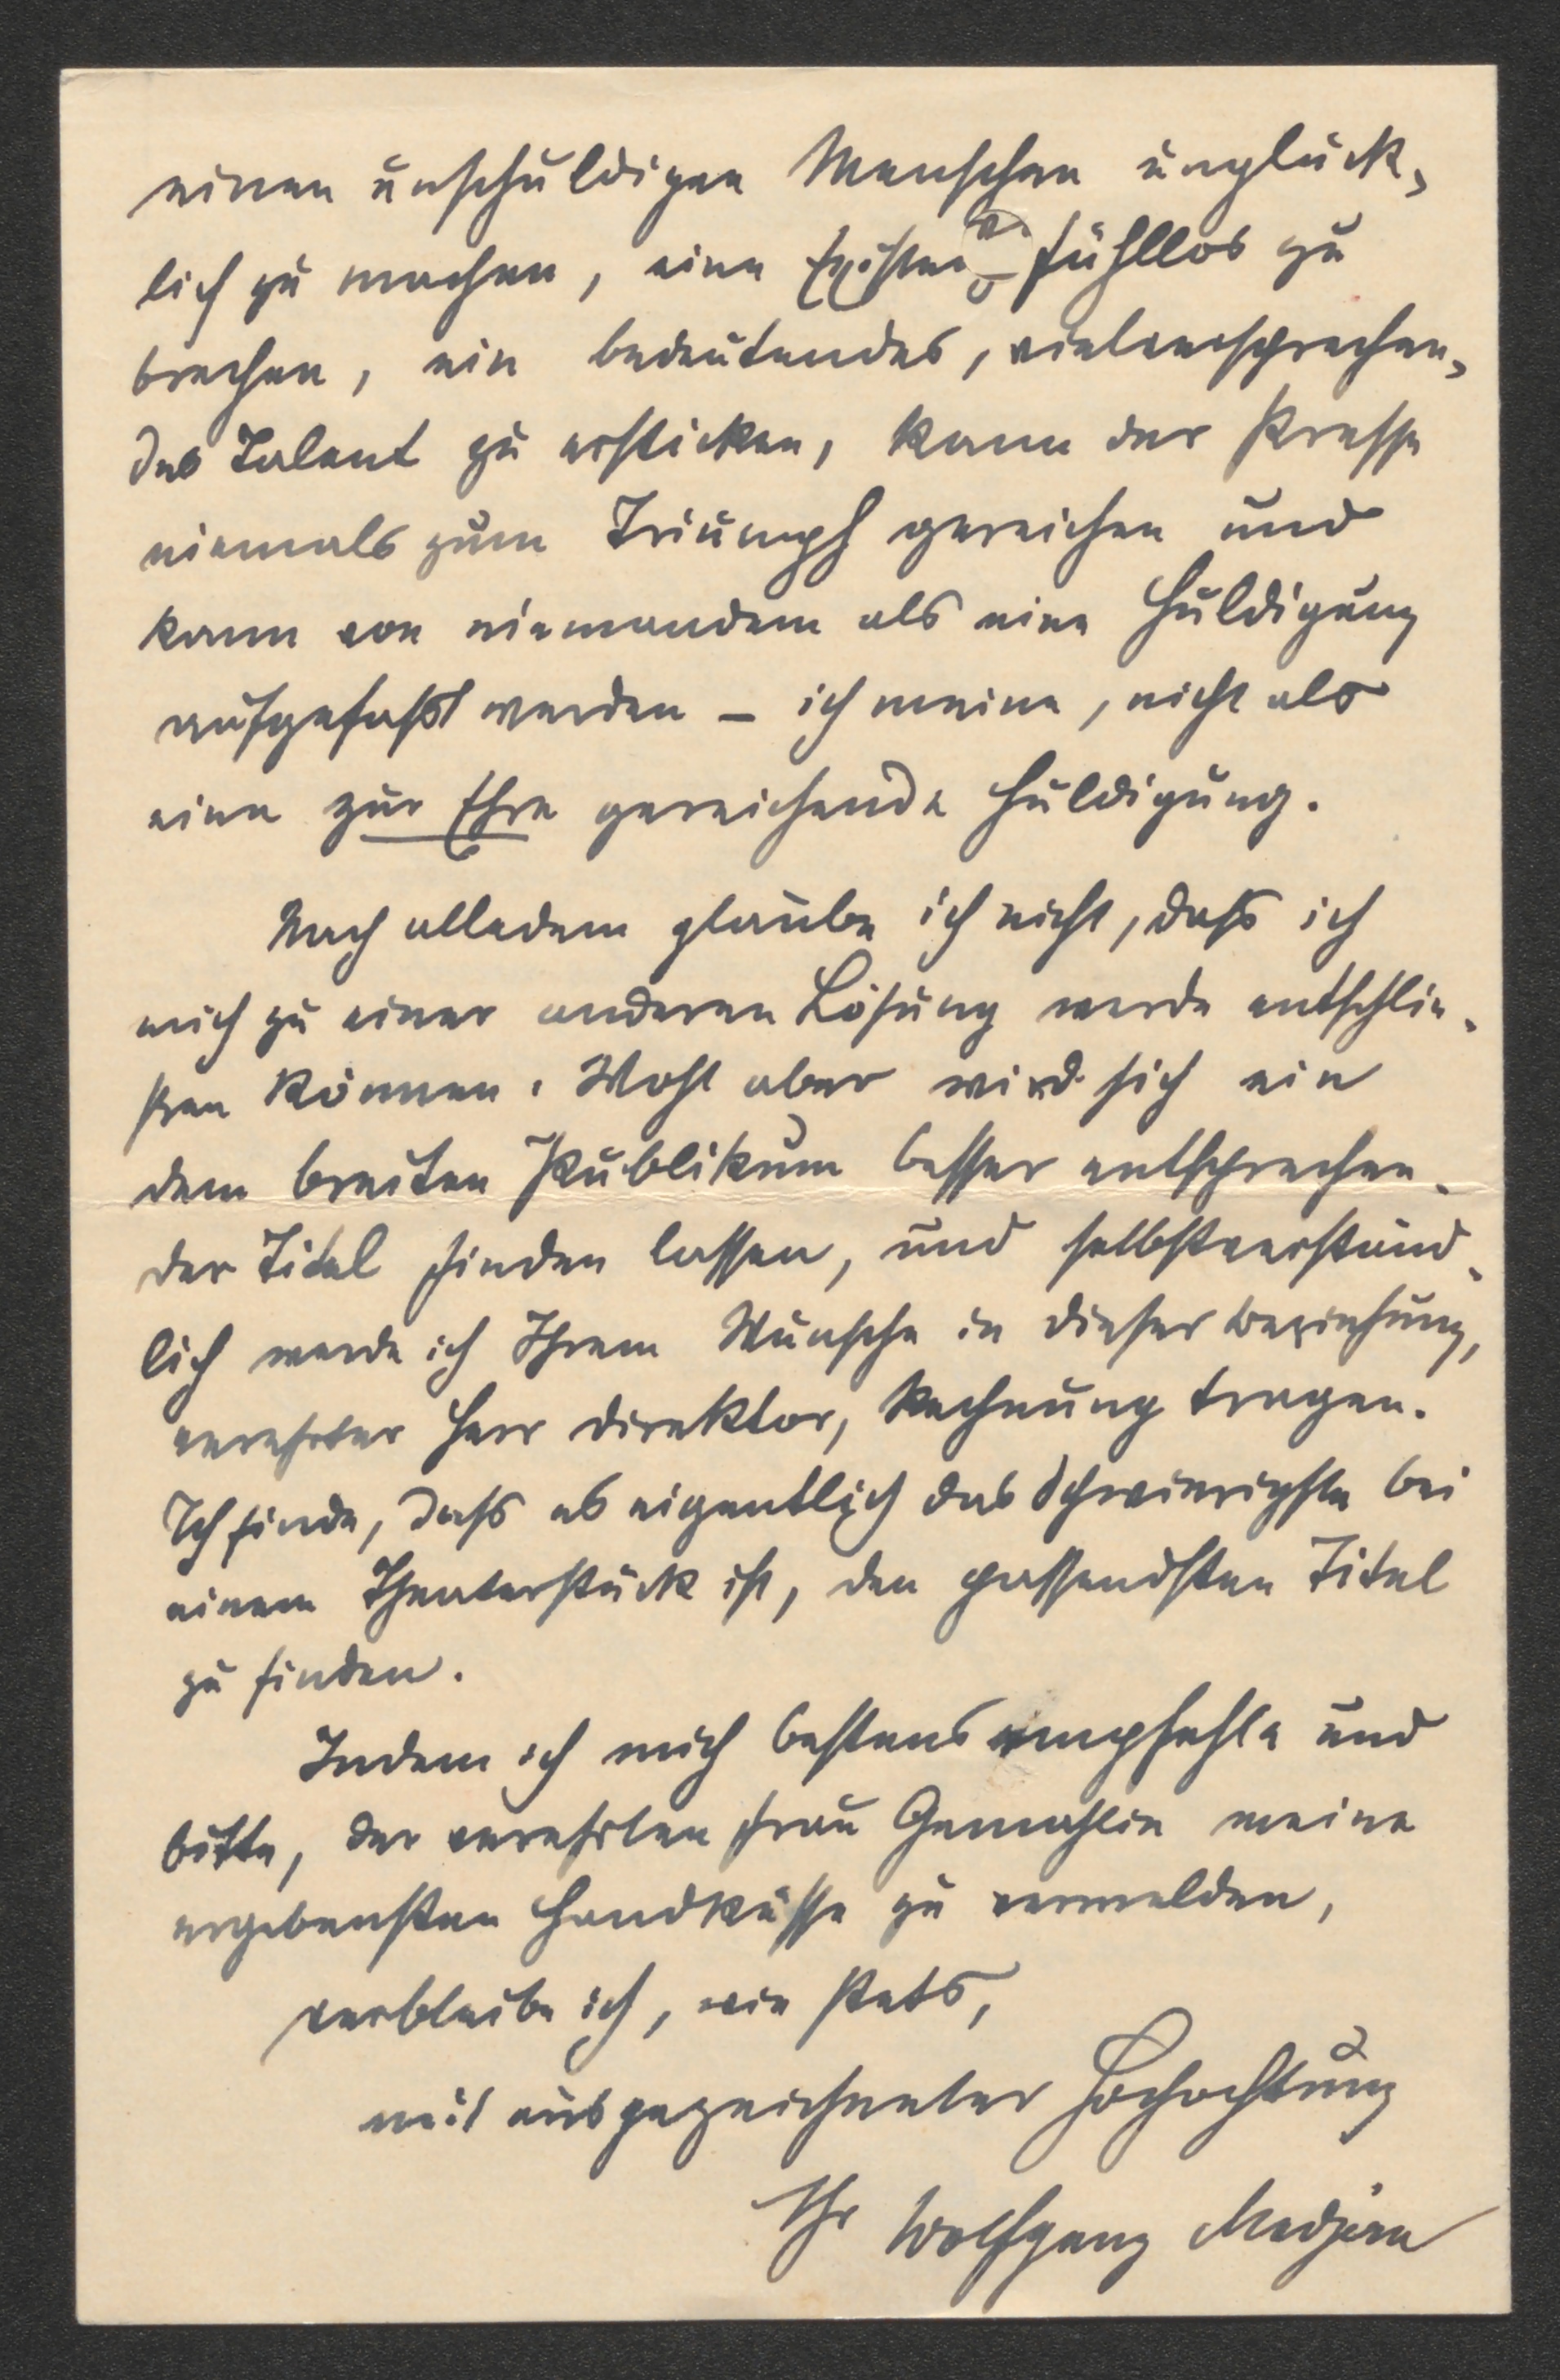 einen unschuldigen Menschen unglück-
lich zu machen, eine Existenz fühllos zu
brechen, ein bedeutendes, vielversprechen-
des Talent zu ersticken, kann der Presse
niemals zum Triumph gereichen und
kann von niemandem als eine Huldigung
aufgefaßt werden – ich meine, nicht als
eine zur Ehre gereichende Huldigung.
Nach alledem glaube ich nicht, daß ich
mich zu einer anderen Lösung werde entschlie-
ßen können. Wohl aber wird sich ein
dem breiten Publikum besser entsprechen-
der Titel finden lassen, und selbstverständ-
lich werde ich Ihrem Wunsche in dieser Beziehung,
verehrter Herr Direktor, Rechnung tragen.
Ich finde, daß es eigentlich das Schwierigste bei
einem Theaterstück ist, den passendsten Titel
zu finden.
Indem ich mich bestens empfehle und
bitte, der verehrten Frau Gemahlin meine
ergebensten Handküsse zu vermelden,
verbleibe ich, wie stets,
mit ausgezeichneter Hochachtung
Ihr Wolfgang Madjera